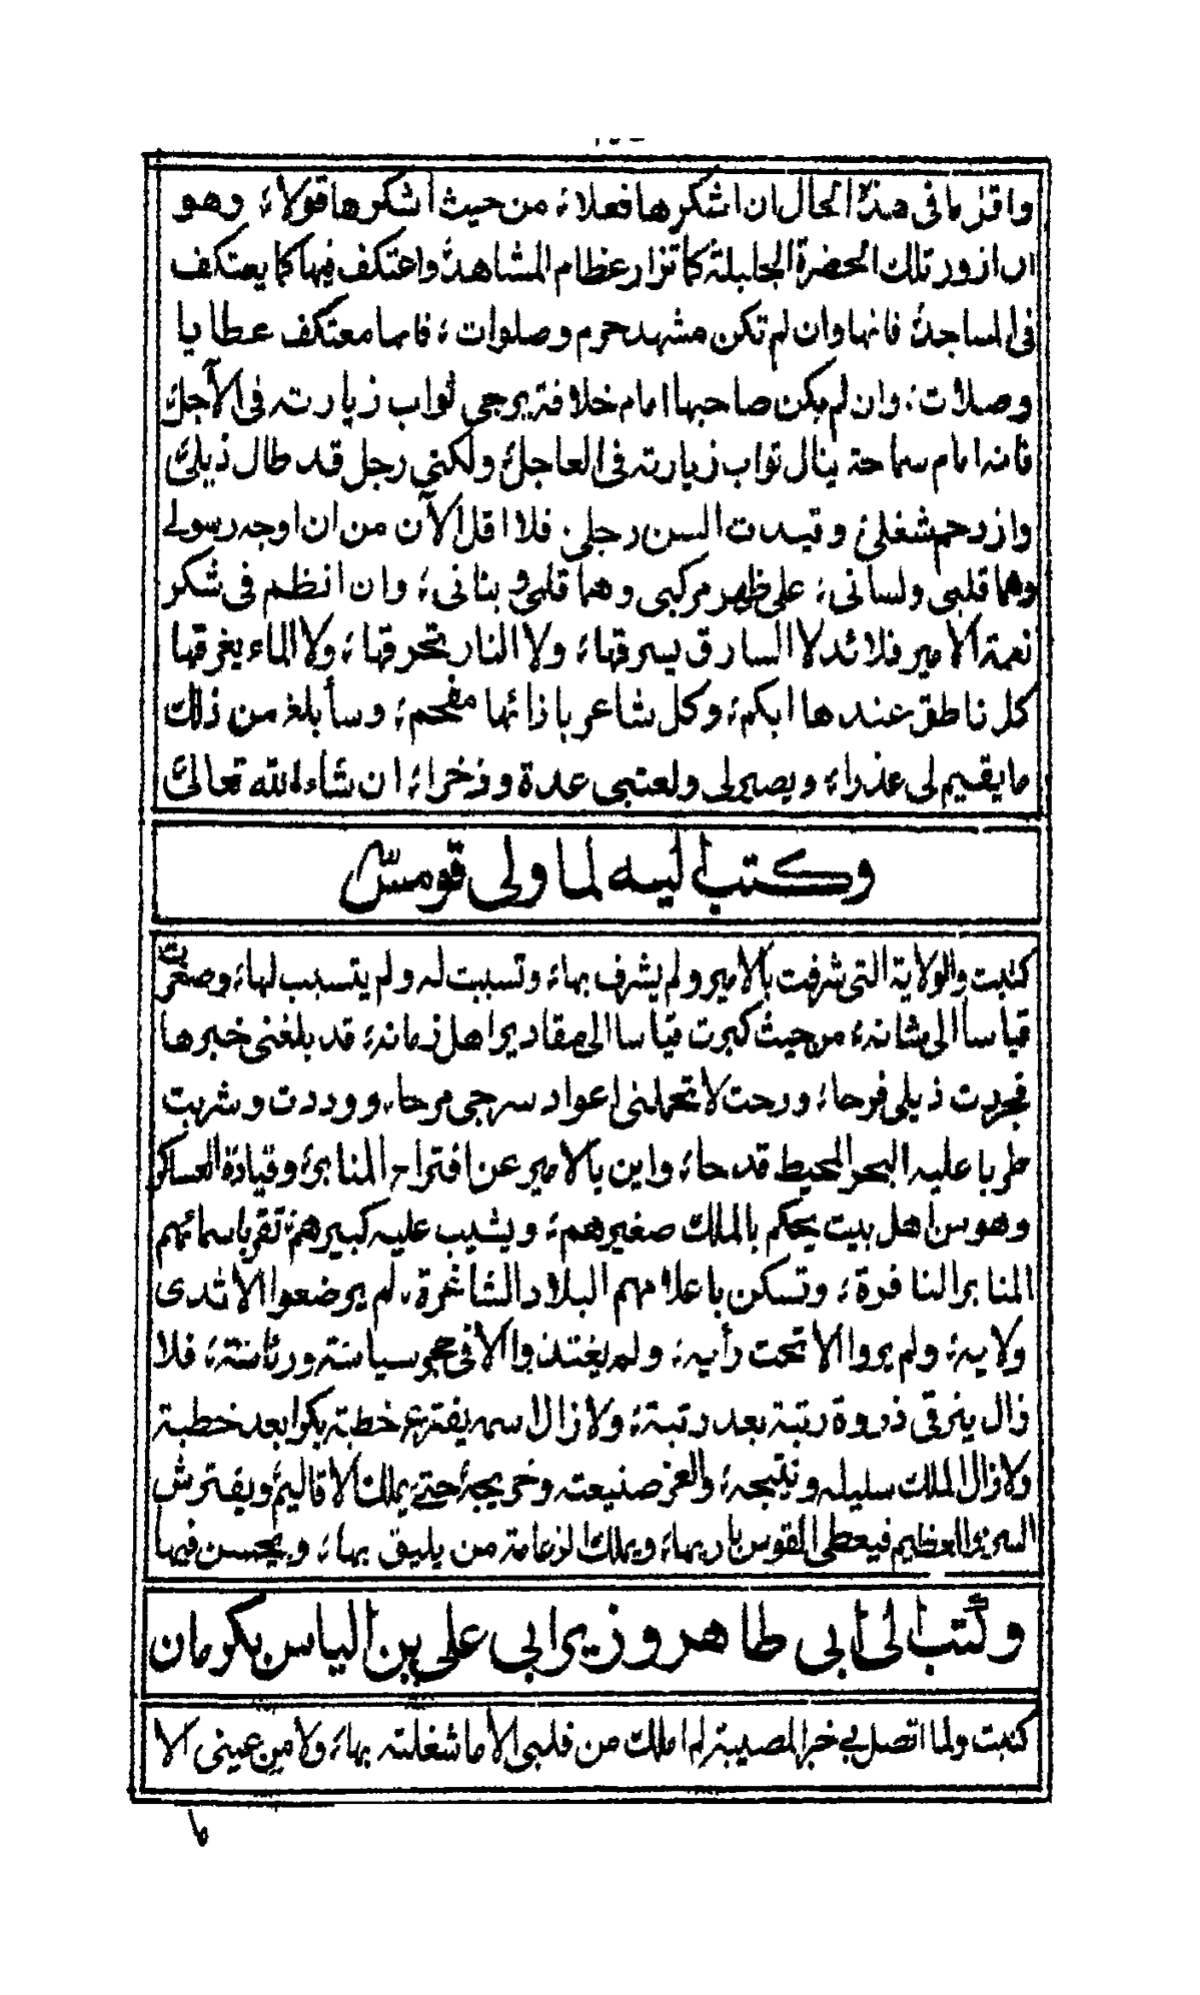 واقل ما فى هذه الحال ان اشكرها فعلاء من حيث اشكرها قولاء وهو
ان ازور تلك الحضرة الجليلة كما تزار عظام المشاهد واعتكف فيها كما يعتكف
فى المساجد فانها وان لم تكن مشهد حرم وصلوات ء فانها معتكف عطايا
وصلات ء وان لم يكن صاحبها امام خلافة يرجى ثواب زيارته فى الآجل
فانه امام سماحة ينال ثواب زيارته فى العاجل ولكنى رجل قد طال ذيلى
وازدحم شغلى وقيدت السن رجلى . فلا اقل الآن من ان اوجه رسولے
وهما قلبى ولسانى ء على ظهر مركبى وهما قلمى وبنانى ء وان انظم فى شكر
نعمة الامير قلائد لا السارق يسرقها ء ولا النار تحرقها ء ولا الماء يغرقها
كل ناطق عندها ابكم ء وكل شاعر بازائها مفحم ء وسأبلغ من ذلك
ما يقيم لى عذراء ويصير لى ولعتبى عدة وذخراء ان شاء الله تعالى
وكتب اليه لما ولى قومس
كتبت والولاية التى شرفت بالامير ولم يشرف بها ء وتسببت له ولم يتسبب لها ء وصغرت
قياسا الى شانه ء من حيث كبرت قياسا الى مقادير اهل زمانه ء قد بلغنى خبرها
فجررت ذيلى فرحا ء ورحت لا تحملنى اعواد سرجى مرحا ء ووددت وشربت
طربا عليه البحر المحيط قدحا ء واين بالامير عن افتراع المنابر ء وقيادة العساكر
وهو من اهل بيت يحكم بالملك صغيرهم ء ويشيب عليه كبيرهم تقر باسمائهم
المنابر النافرة ء وتسكن باعلامهم البلاد الشاغرة ء لم يرضعوا الا ثدى
ولاية ء ولم يروا الا تحت رأية ء ولم يغتذوا الا فى حجر سياسة ورئاسة ء فلا
زال يترقى ذروة رتبة بعد رتبة ء ولا زال اسمه يفترع خطبة بكرا بعد خطبة
ولا زال الملك سليله ونتيجه ء والعز صنيعته وخريجه حتى يملك الاقاليم ويفترش
السرير العظيم فيعطى القوس باريها ء ويملك الزعامة من يليق بها ء ويحسن فيها
وكتب الى ابى طاهر وزير ابى على بن الياس بكرمان
كتبت ولما اتصل بى خبر المصيبة لم املك من قلبى الا ما شغلته بها ء ولا من عينى الا
ما